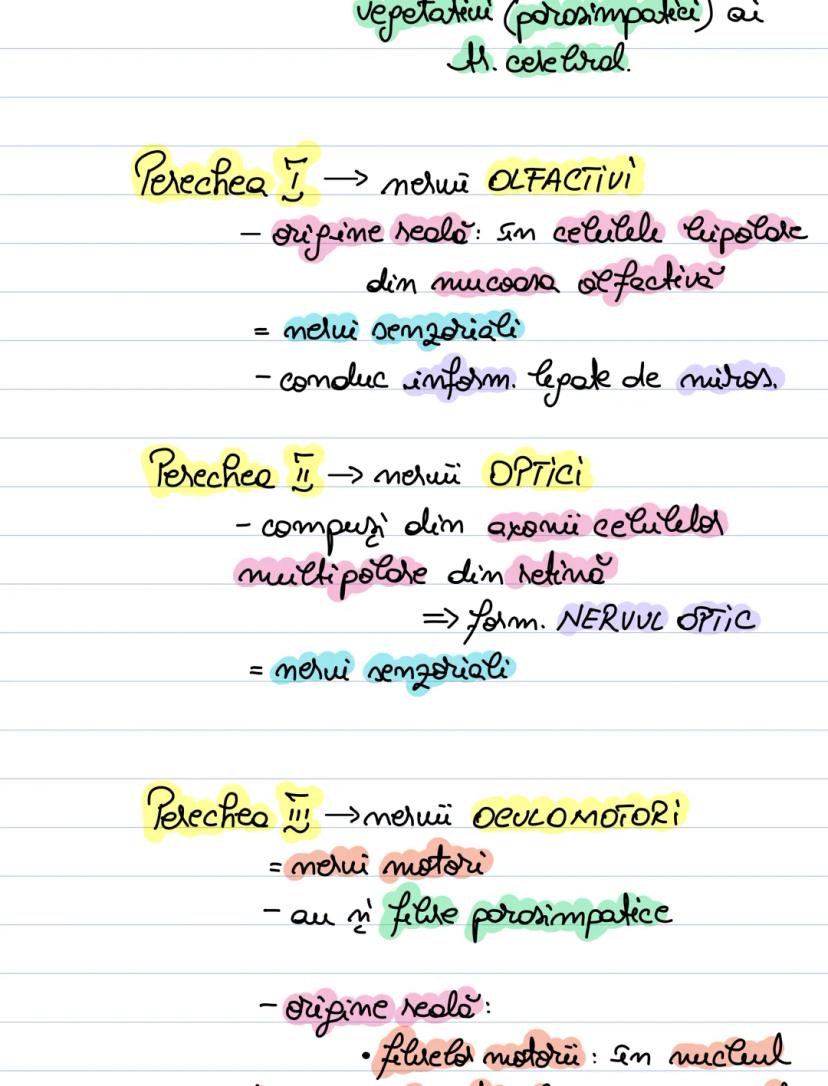 vegetativi (parasimpatici) ai
tr. cerebral.
Perechea I → nervii OLFACTIVI
- origine reală: în celulele bipolare
din mucoasa olfactivă
= nervi senzoriali
- conduc inform. legate de miros.
Perechea II → nervii OPTICI
- compuși din axonii celulelor
multipolare din retină
⇒ form. NERVUL OPTIC
= nervi senzoriali
Perechea III → nervii OCULOMOTORI
= nervi motori
- au și fibre parasimpatice
- origine reală:
• fibrelor motorii: în nucleul